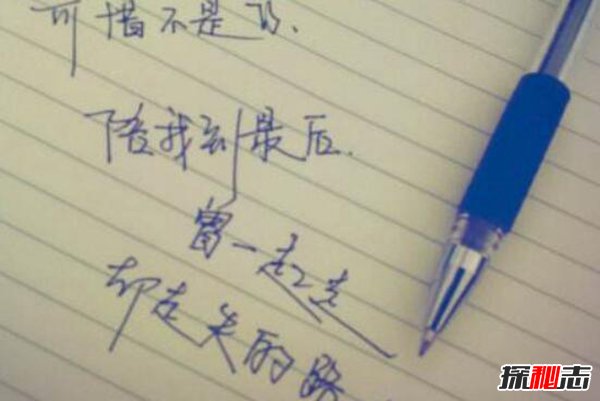 可惜不是你、
陪我到最后.
曾一起走
却走失的路
探秘志